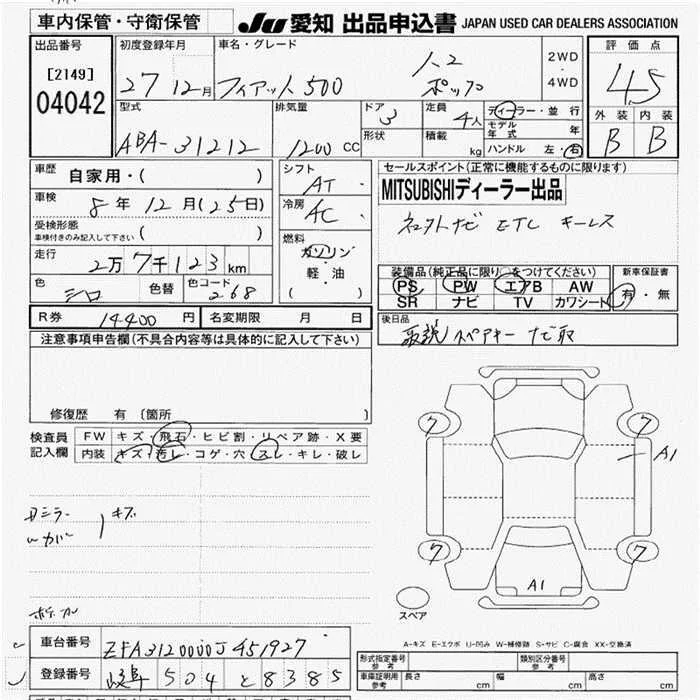 車内保管・守衛保管 JU 愛知 出品申込書 JAPAN USED CAR DEALERS ASSOCIATION
出品番号 [2149] 04042
初度登録年月 27 12月
車名・グレード フィアット500 ポップ
2WD・4WD
評価点 4.5
外装 内装
B B
型式 ABA-31212
排気量 1200 CC
ドア 3
形状
定員 4人
積載 kg
ディーラー・並行
モデル年式 年
ハンドル 左・右
車歴 自家用・( )
車検 8年 12月(25日)
受検形態
車検付きのみ記入して下さい ( )
走行 2万7千123km
色 シロ 色替 色コード 268
シフト AT
冷房 AC
燃料 ガソリン・軽・油 ( )
セールスポイント(正常に機能するものに限ります)
MITSUBISHIディーラー出品
ナビ ETC キーレス
装備品(純正品に限り○をつけてください) 新車保証書
PS PW エアB AW
SR ナビ TV カワシート
有・無
R券 14400円 名変期限 月 日
後日品 取説 スペアキー ナビ取
注意事項申告欄(不具合内容等は具体的に記入して下さい)
修復歴 有 〔箇所 〕
検査員記入欄
FW キズ・飛石・ヒビ割・リペア跡・X要
内装 キズ・汚レ・コゲ・穴・スレ・キレ・破レ
ミラー キズ
カバー
7 7
A1
7 7
A1
スペア
A-キズ E-エクボ U-凹み W-補修跡 S-サビ C-腐食 XX-交換済
車台番号 ZFA3120000J451927
登録番号 岐阜 504 と 8385
形式指定番号 参考 類別区分番号 参考
車庫証明用 参考 長さ cm 幅 cm 高さ cm